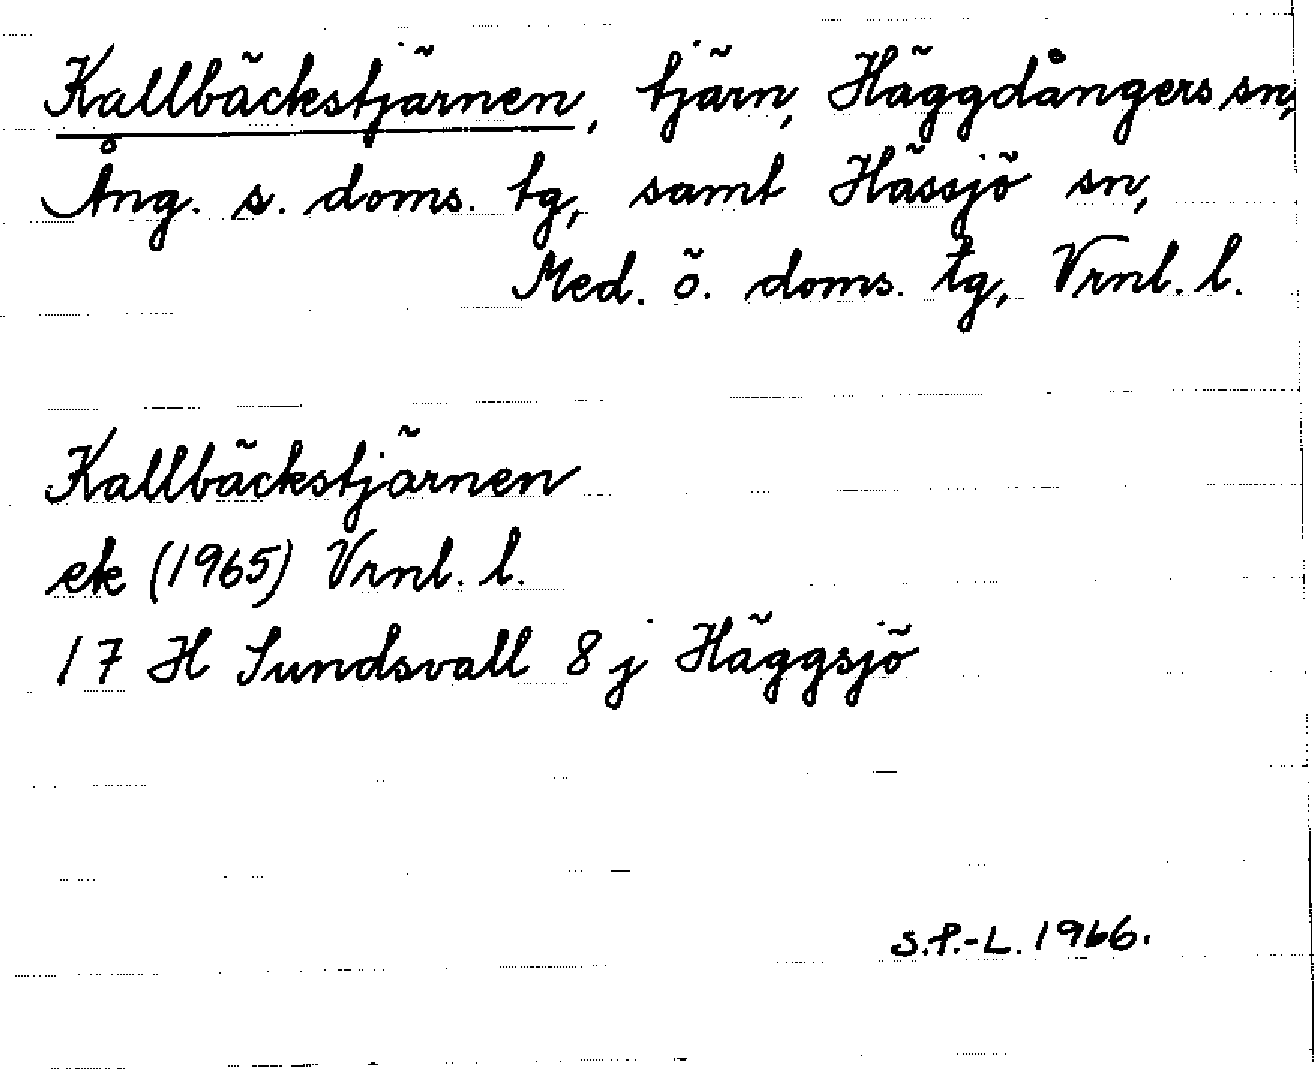 Kallbäckstjärnen, tjärn, Häggdångers sn,
Ång. s. doms. tg, samt Hässjö sn,
Med. ö. doms. tg, Vrnl. l.
Kallbäckstjärnen
ek (1965) Vrnl. l.
17 H Sundsvall 8 j Häggsjö
S.P.-L. 1966.